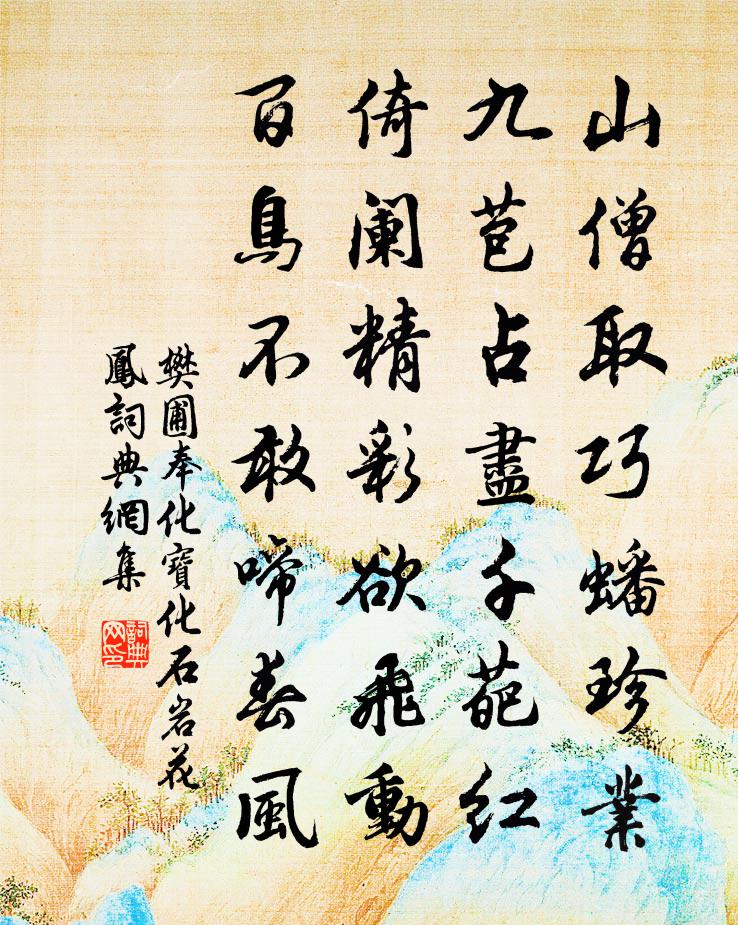 山僧取巧蟠珍業
九苞占盡千葩紅
倚闌精彩欲飛動
百鳥不敢啼春風
樊圃奉化寶化石岩花
鳳詞典網集
詞典網印